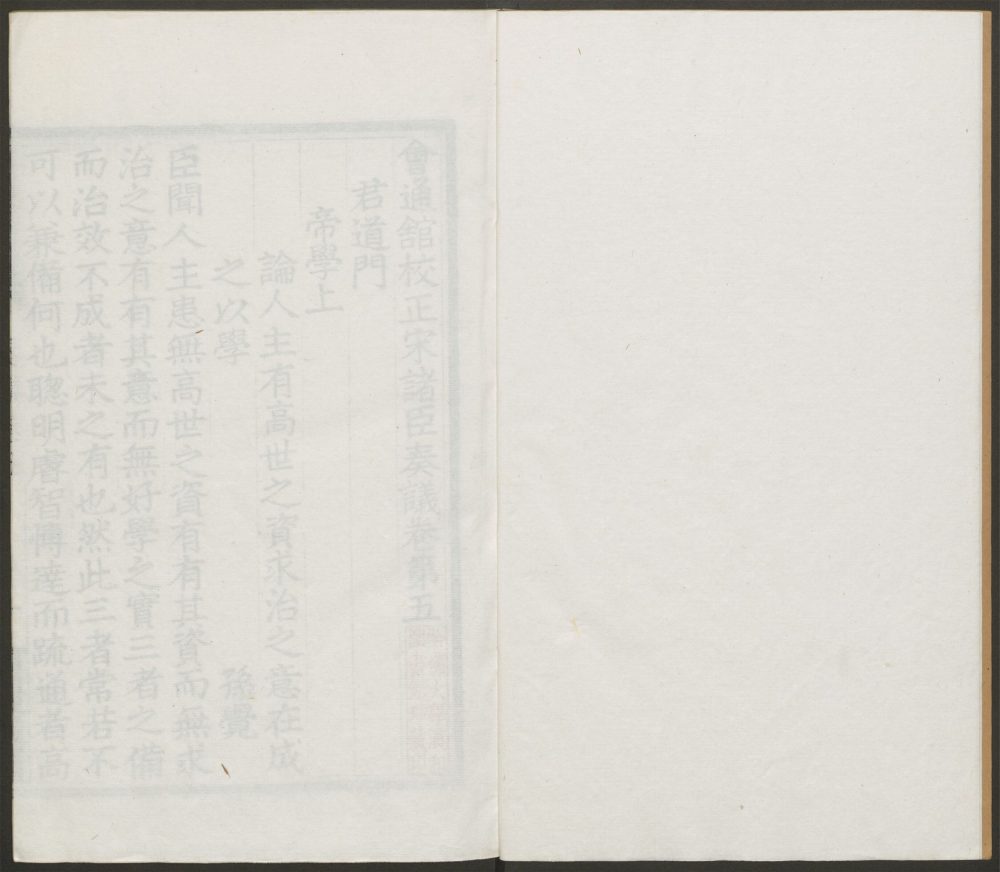 會通館校正宋諸臣奏議卷第五
君道門
帝學上
論人主有高世之資求治之意在成
之以學 孫覺
臣聞人主患無高世之資有有其資而無求
治之意有有其意而無好學之實三者之備
而治效不成者未之有也然此三者常若不
可以兼備何也聰明睿智博達而疏通者高